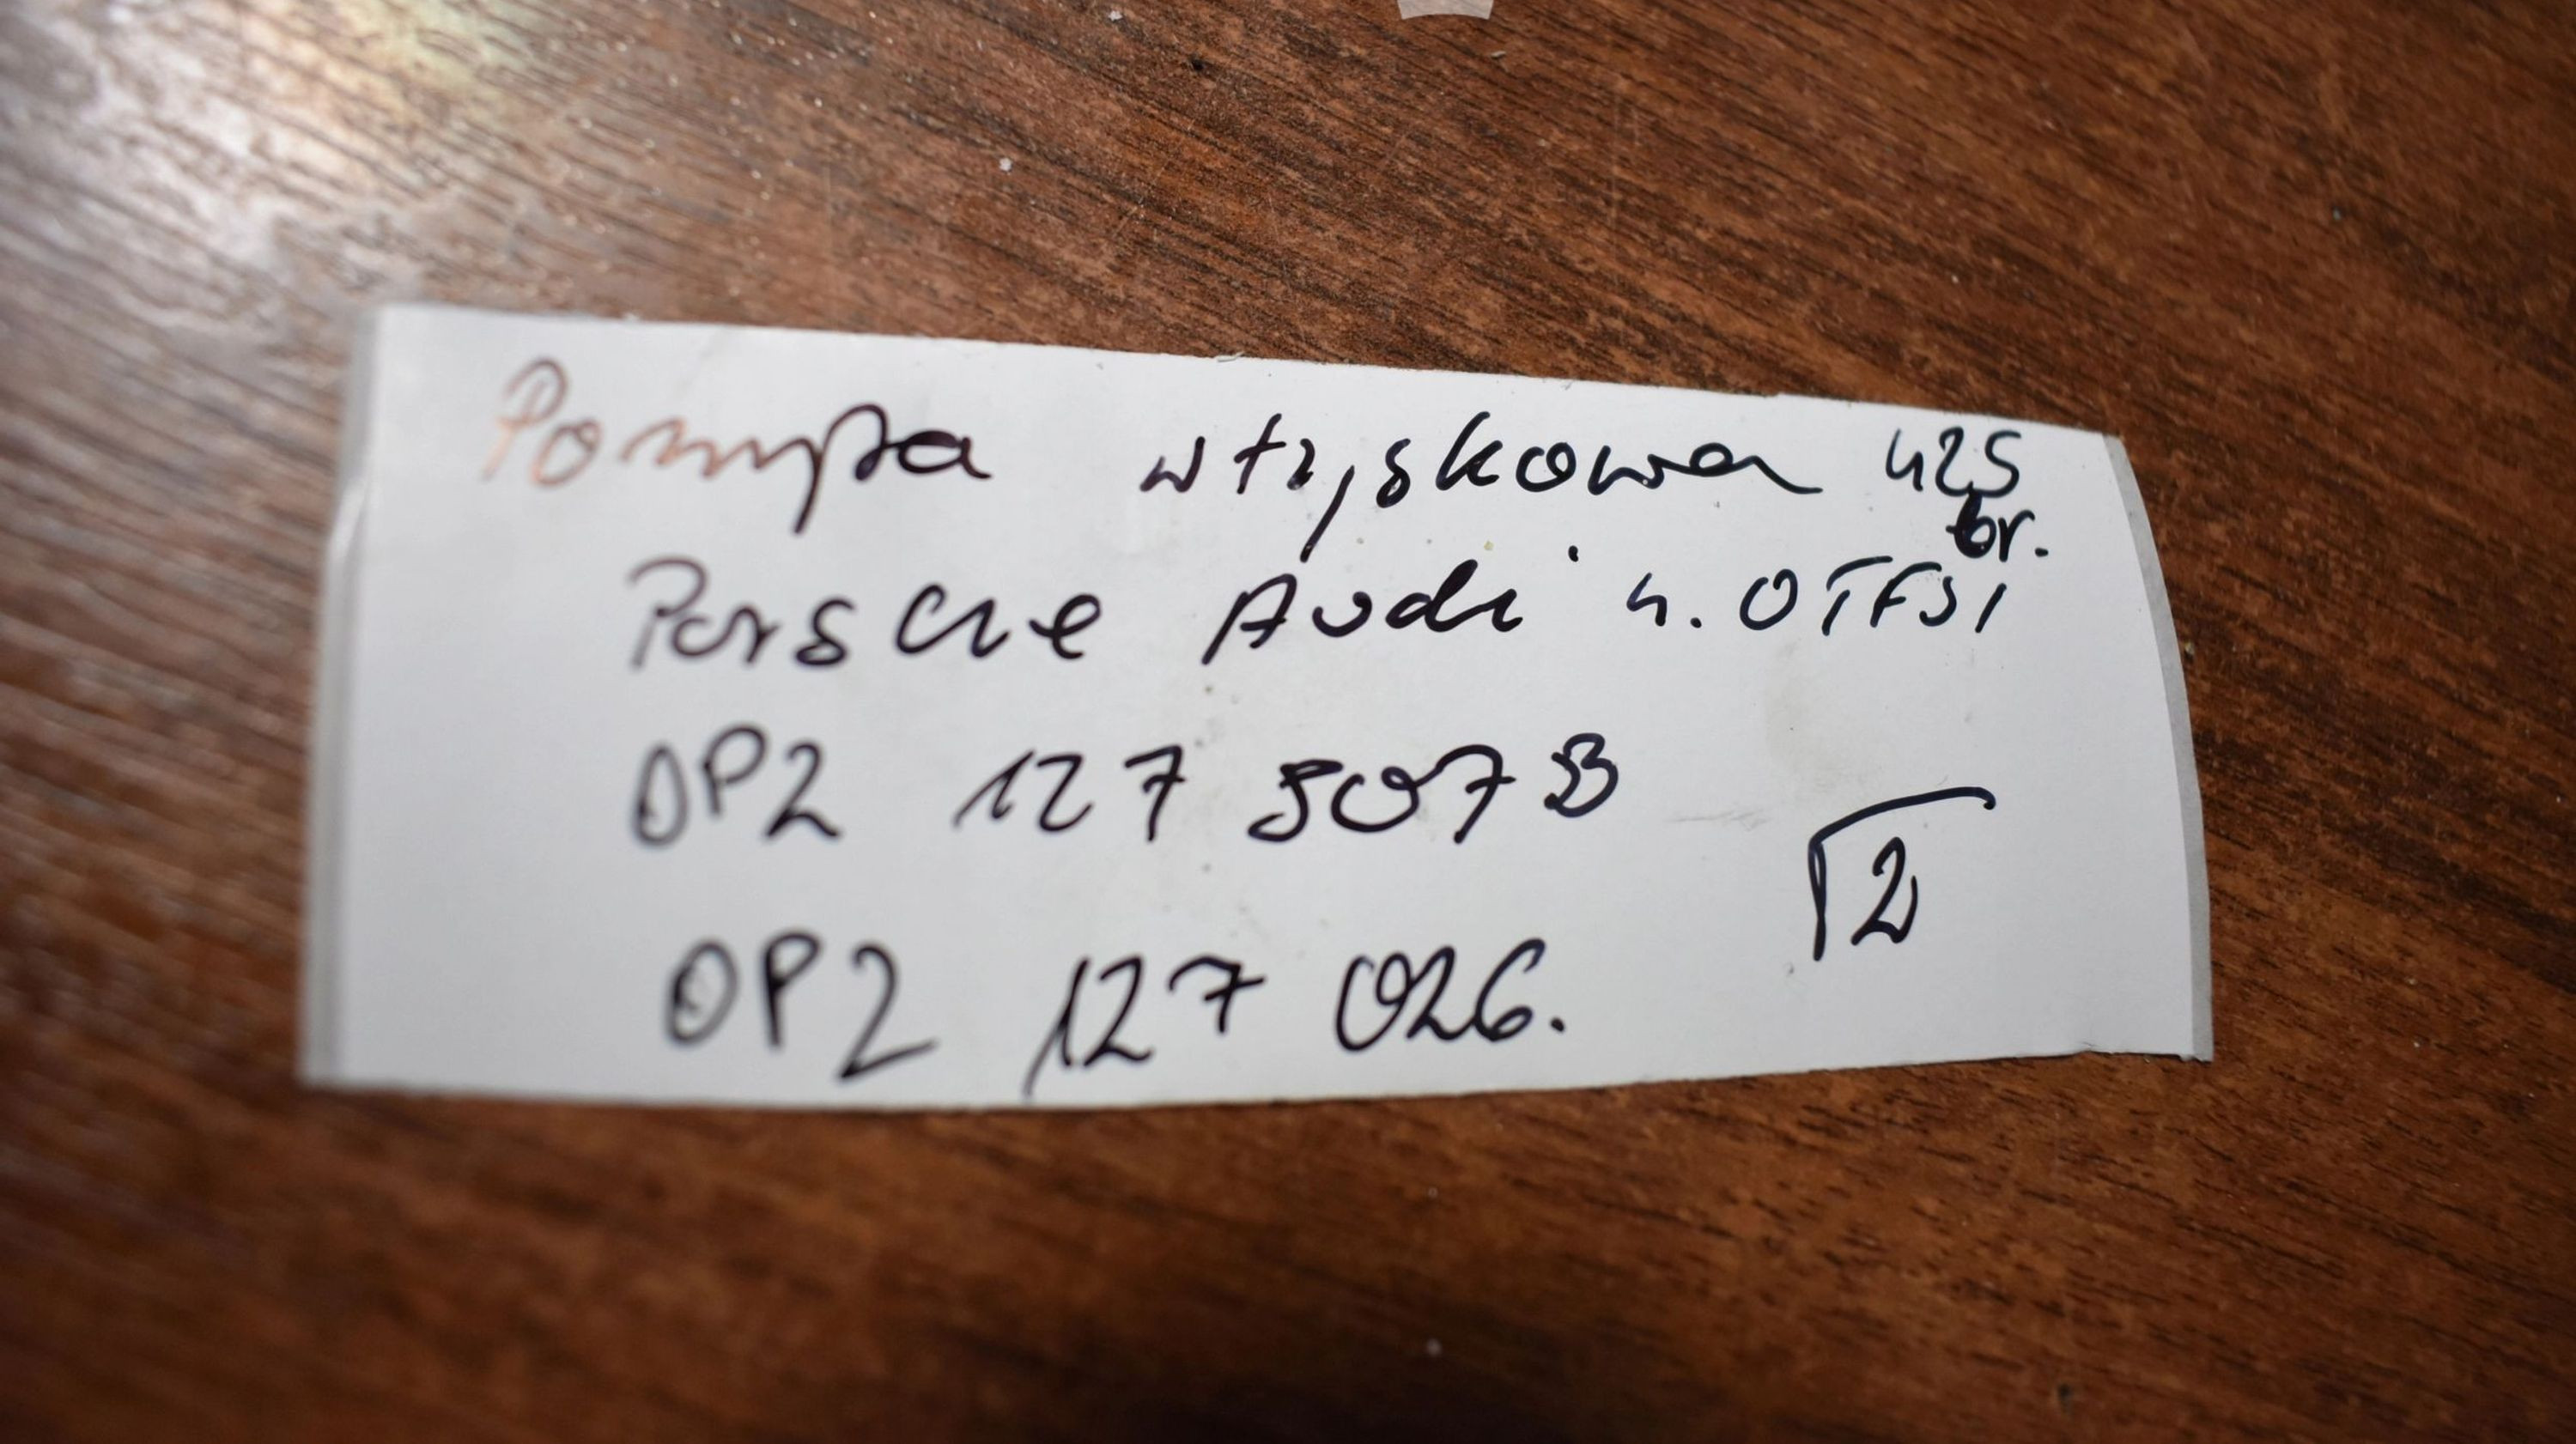 Pompa wtryskowa 425
br.
Porsche Audi 4.0TFSI
OP2 127 507 B
√2
OP2 127 026.